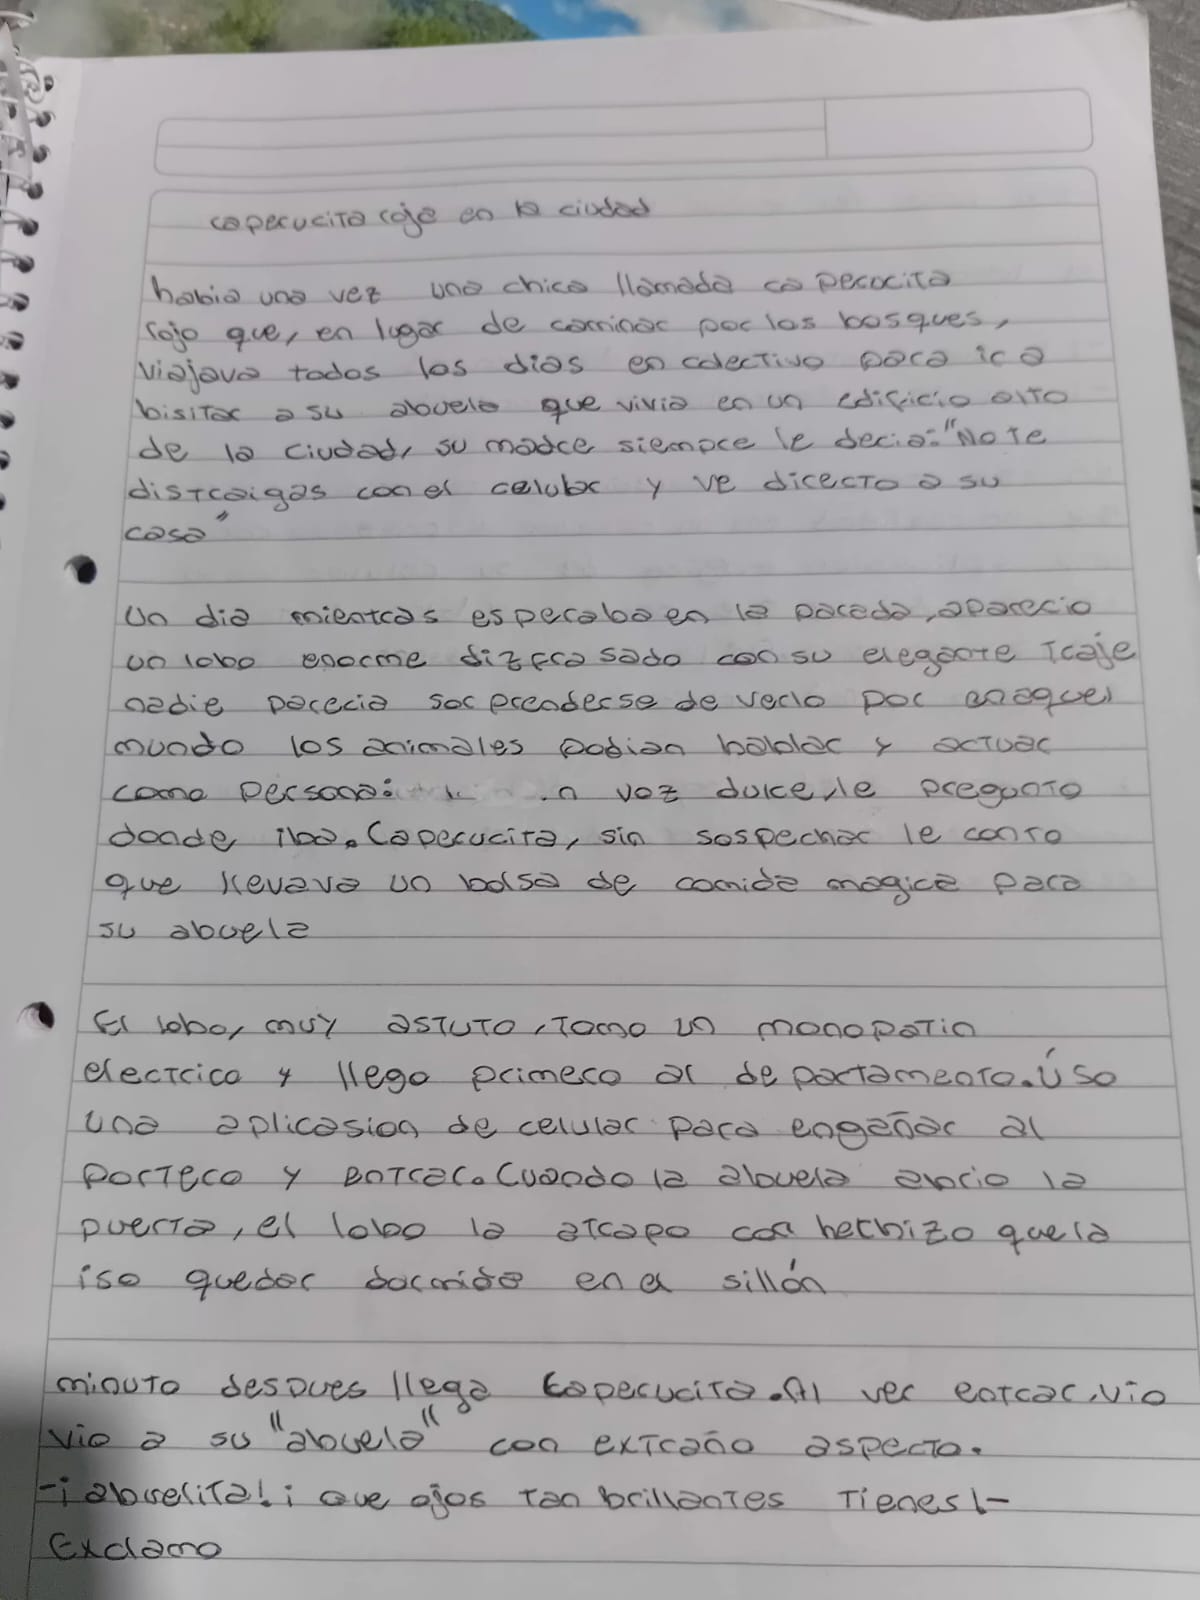 caperucita roja en la ciudad
habia una vez una chica llamada capecocita
rojo que, en lugar de caminar por los bosques,
viajava todos los dias en colectivo para ir a
bisitar a su abuela que vivia en un edificio alto
de la ciudad, su madre siempre le decia: "No te
distraigas con el celular y ve directo a su
casa"
Un dia mientras esperaba en la parada, aparecio
un lobo enorme dizfrasado con su elegante traje
nadie parecia sorprenderse de verlo por enaquel
mundo los animales podian hablar y actuar
como persona: voz dulce, le pregunto
donde iba. Caperucita, sin sospechar le conto
que llevava un bolsa de comida magica para
su abuela
El lobo, muy astuto, tomo un monopatin
electrico y llego primero al departamento. Úso
una aplicasion de celular para engañar al
portero y entrar. Cuando la abuela abrio la
puerta, el lobo la atrapo con hechizo que la
iso quedar dormida en el sillón
minuto despues llega Caperucita. Al ver entrar, vio
vio a su "abuela" con extraño aspecto.
-¡abuelita! ¡que ojos tan brillantes tienes!-
Exclamo